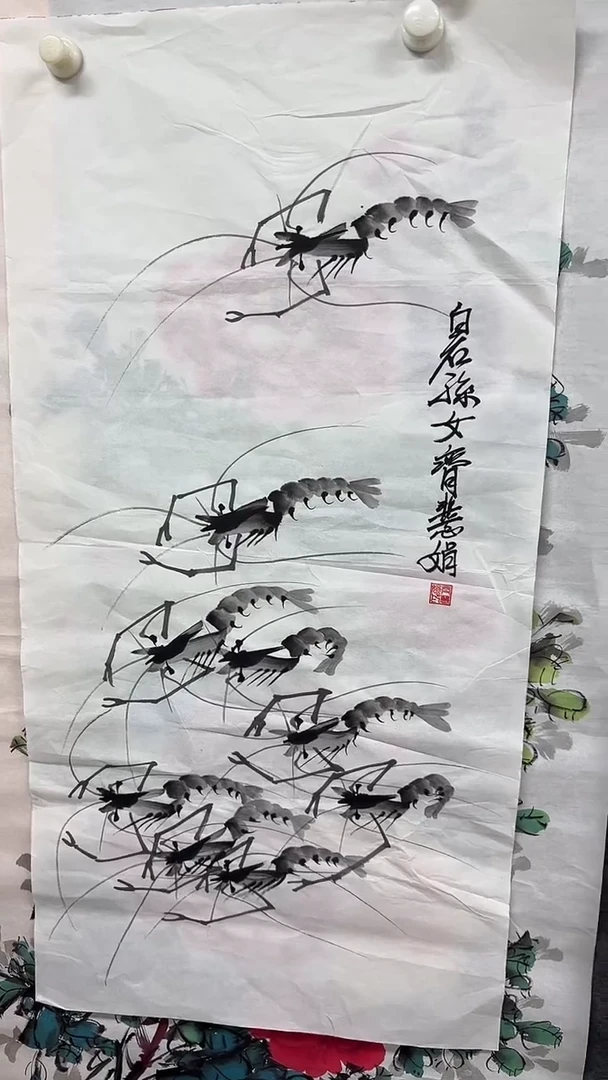 白石孫女齊慧娟